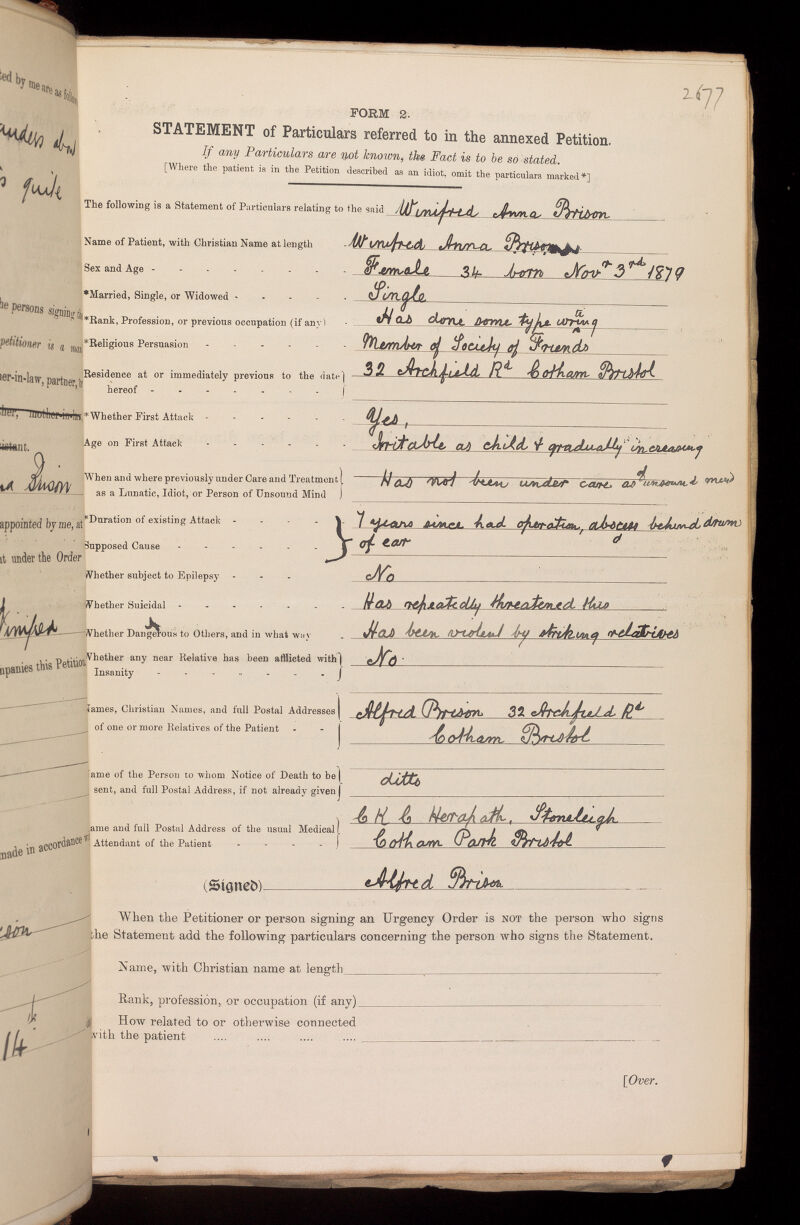 2677
FORM 2.
STATEMENT of Particulars referred to in the annexed Petition.
If any Particulars are not known, the Fact is to be so stated.
[Where the patient is in the Petition described as an idiot, omit the particulars marked*]
The following is a Statement of Particulars relating to the said Winifred Anna Brison
Name of Patient, with Christian Name at length Winifred Anna Brison
Sex and Age - - - - - - - - Female 34 born Novr 3rd 1879
*Married, Single, or Widowed - - - - - Single
*Rank, Profession, or previous occupation (if any) - Has done some type writing
*Religious Persuasion - - - - - Member of Society of Friends
Residence at or immediately previous to the date 32 Archfield Rd Cotham Bristol
hereof - - - - - - -
*Whether First Attack - - - - - - Yes,
Age on First Attack - - - - - - Irritable as child & gradually increasing
When and where previously under Care and Treatment Has not been under care as of unsound mind
as a Lunatic, Idiot, or Person of Unsound Mind
*Duration of existing Attack - - - - 7 years since had operation, abscess behind drum
Supposed Cause - - - - - - of ear
Whether subject to Epilepsy - - - No
Whether Suicidal - - - - - - Has repeatedly threatened this
Whether Dangerous to Others, and in what way - Has been violent by striking relatives
Whether any near Relative has been afflicted with No.
Insanity - - - - - - -
Names, Christian Names, and full Postal Addresses Alfred Brison 32 Archfield Rd
of one or more Relatives of the Patient - - Cotham Bristol
ame of the Person to whom Notice of Death to be ditto
sent, and full Postal Address, if not already given
ame and full Postal Address of the usual Medical C K C Herapath, Stoneleigh
Attendant of the Patient - - - - Cotham Park Bristol
(Signed) Alfred Brison
When the Petitioner or person signing an Urgency Order is NOT the person who signs
the Statement add the following particulars concerning the person who signs the Statement.
Name, with Christian name at length
Rank, profession, or occupation (if any)
How related to or otherwise connected
with the patient .... .... .... ....
[Over.